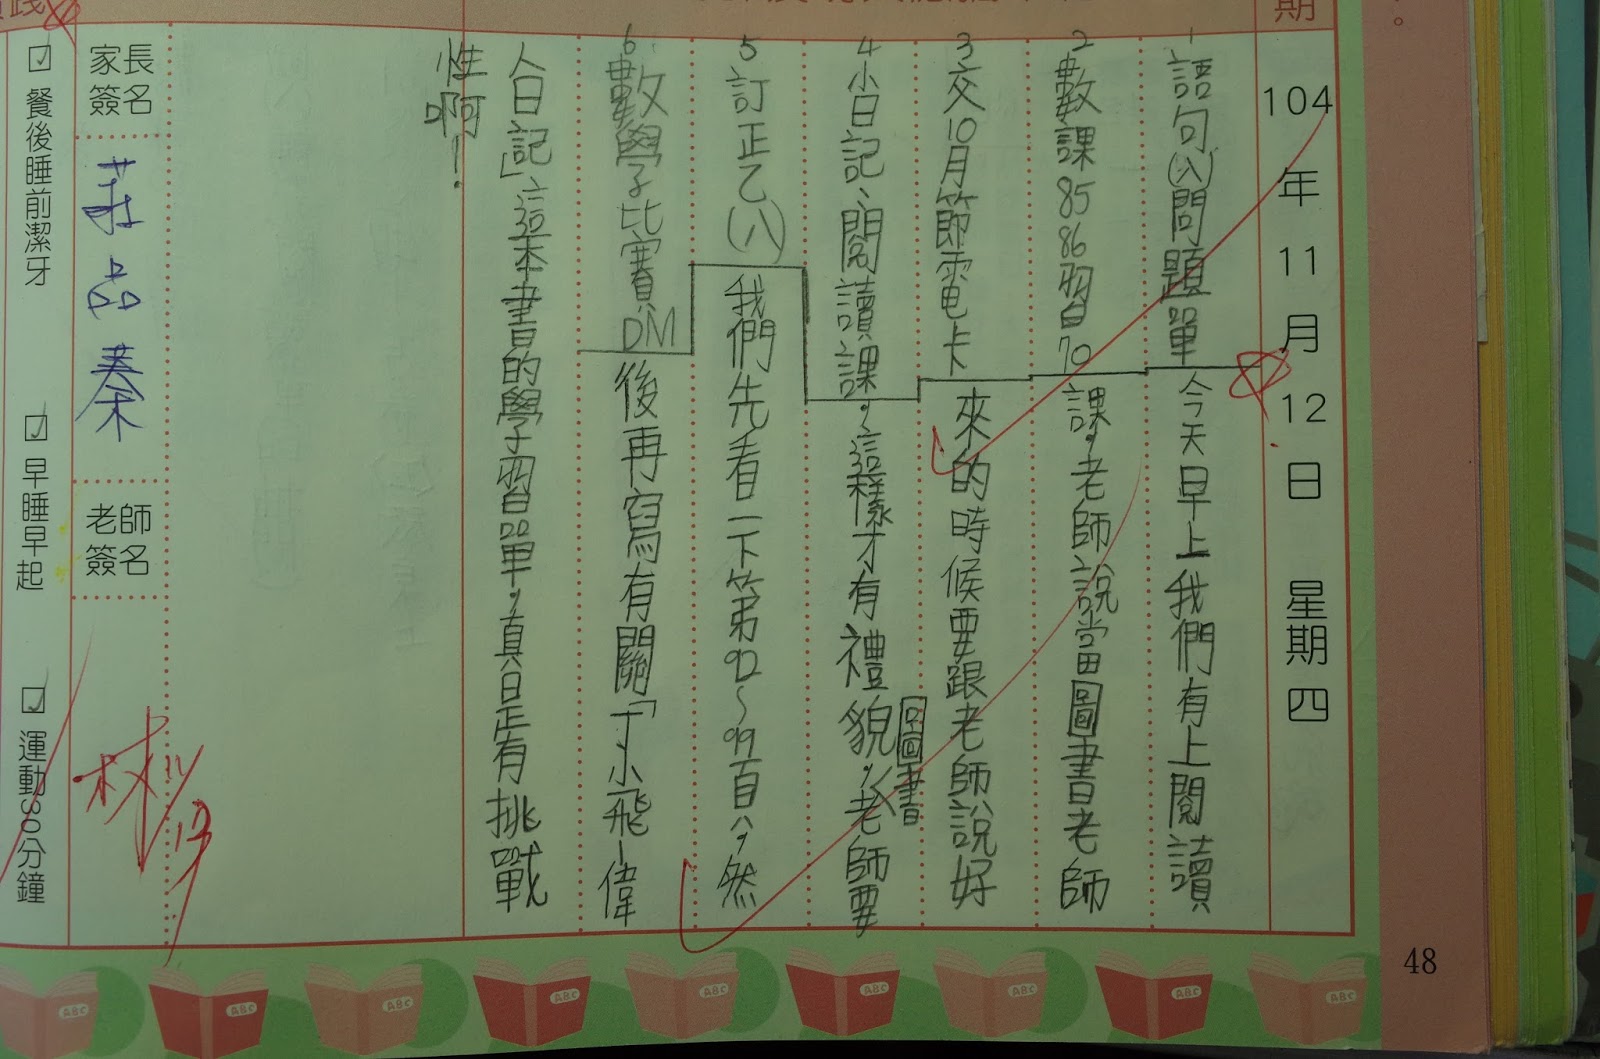 期
104年11月12日 星期四
1語句(八)問題單 今天早上我們有上閱讀
2數課85 86習70 課,老師說當圖書老師
3交10月節電卡 來的時候要跟老師說好
4小日記、閱讀課,這樣才有禮貌,圖書老師要
5訂正乙(八) 我們先看一下第92~99百八,然
6數學比賽DM 後再寫有關「丁小飛偉
人日記」這本書的學習單,真是有挑戰
性啊!
家長簽名
老師簽名
林 11/13
☑餐後睡前潔牙 ☑早睡早起 ☑運動30分鐘
48
ABC
ABC
ABC
ABC
ABC
ABC
ABC
ABC
ABC